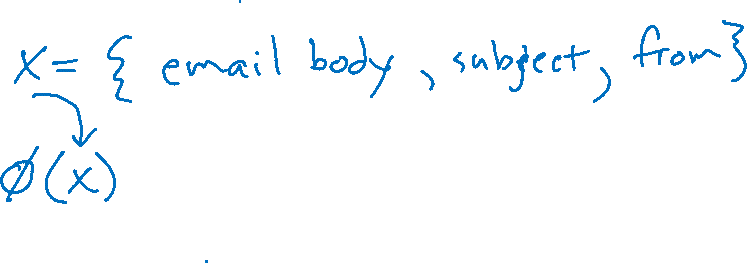 x = { email body, subject, from }
φ(x)